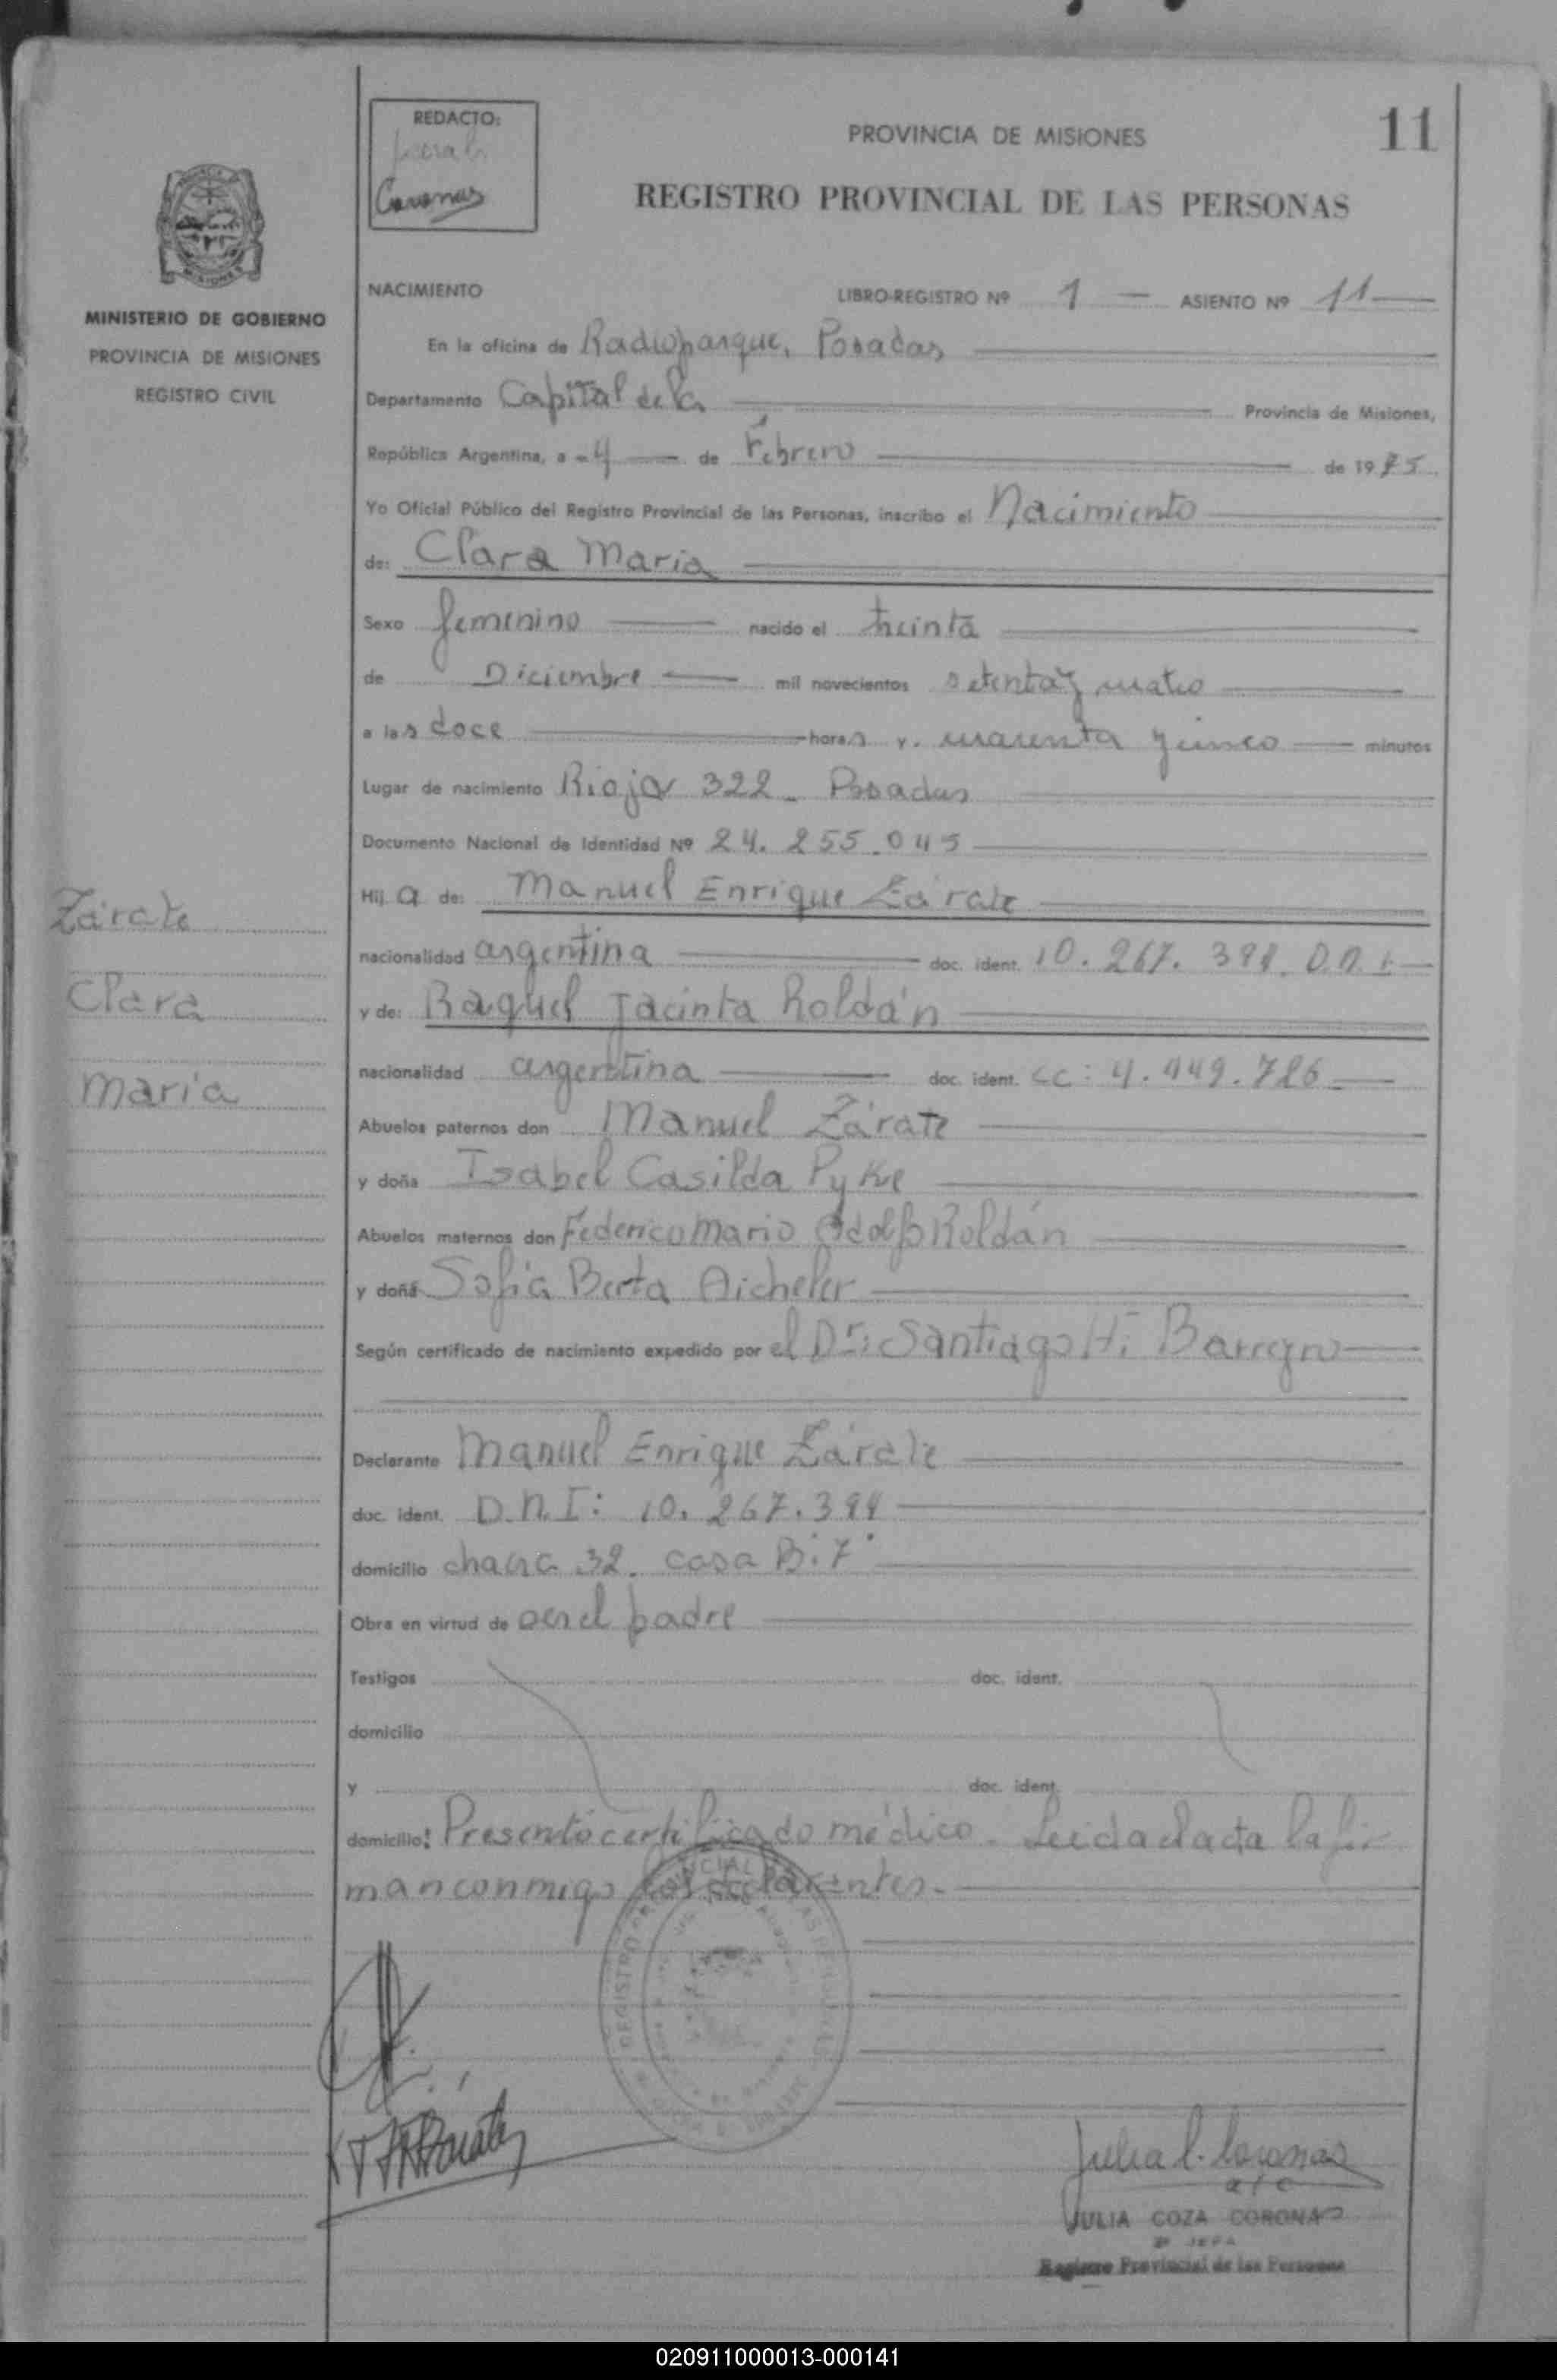 REDACTO:
Coronas
PROVINCIA DE MISIONES
11
REGISTRO PROVINCIAL DE LAS PERSONAS
MISIONES
MINISTERIO DE GOBIERNO
PROVINCIA DE MISIONES
REGISTRO CIVIL
NACIMIENTO LIBRO-REGISTRO Nº 1 — ASIENTO Nº 11
En la oficina de Radioparque, Posadas
Departamento Capital de la Provincia de Misiones,
República Argentina, a - 4 — de Febrero de 1975
Yo Oficial Público del Registro Provincial de las Personas, inscribo el Nacimiento
de: Clara Maria
Sexo femenino nacido el treinta
de Diciembre mil novecientos setenta y cuatro
a las doce horas y cuarenta y cinco minutos
Lugar de nacimiento Rioja 322 - Posadas
Documento Nacional de Identidad Nº 24.255.045
Hij a de: Manuel Enrique Zárate
nacionalidad argentina doc. ident. 10.267. D.N.I.
y de: Raquel Jacinta Roldán
nacionalidad argentina doc. ident. CC: 4.449.786
Abuelos paternos don Manuel Zárate
y doña Isabel Casilda Pyke
Abuelos maternos don Federico Mario Adolfo Roldán
y doña Sofia Berta Aicheler
Según certificado de nacimiento expedido por el Dr: Santiago H. Barreyro
Declarante Manuel Enrique Zárate
doc. ident. D.N.I: 10.267.
domicilio chacra 32. casa B: 7
Obra en virtud de ser el padre
Testigos doc. ident.
domicilio
y doc. ident.
domicilio: Presentó certificado médico. Leida el acta la fir
man conmigo los declarantes.-
Zárate
Clara
Maria
Julia C. Coronas
a/c
JULIA COZA CORONAS
2º JEFA
Registro Provincial de las Personas
020911000013-000141